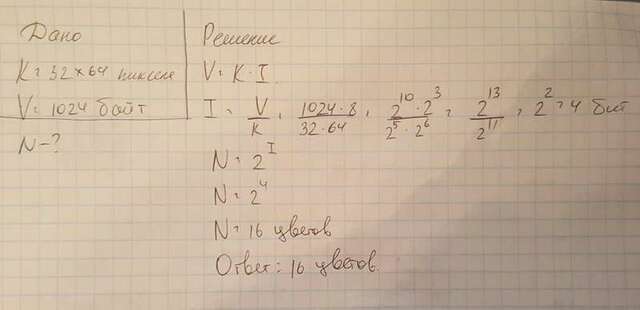 Дано
K = 32 × 64 пикселя
V = 1024 байт
N - ?
Решение
V = K · I
I = V/K = 1024 · 8 / 32 · 64 = 2^10 · 2^3 / 2^5 · 2^6 = 2^13 / 2^11 = 2^2 = 4 бит
N = 2^I
N = 2^4
N = 16 цветов
Ответ: 16 цветов.